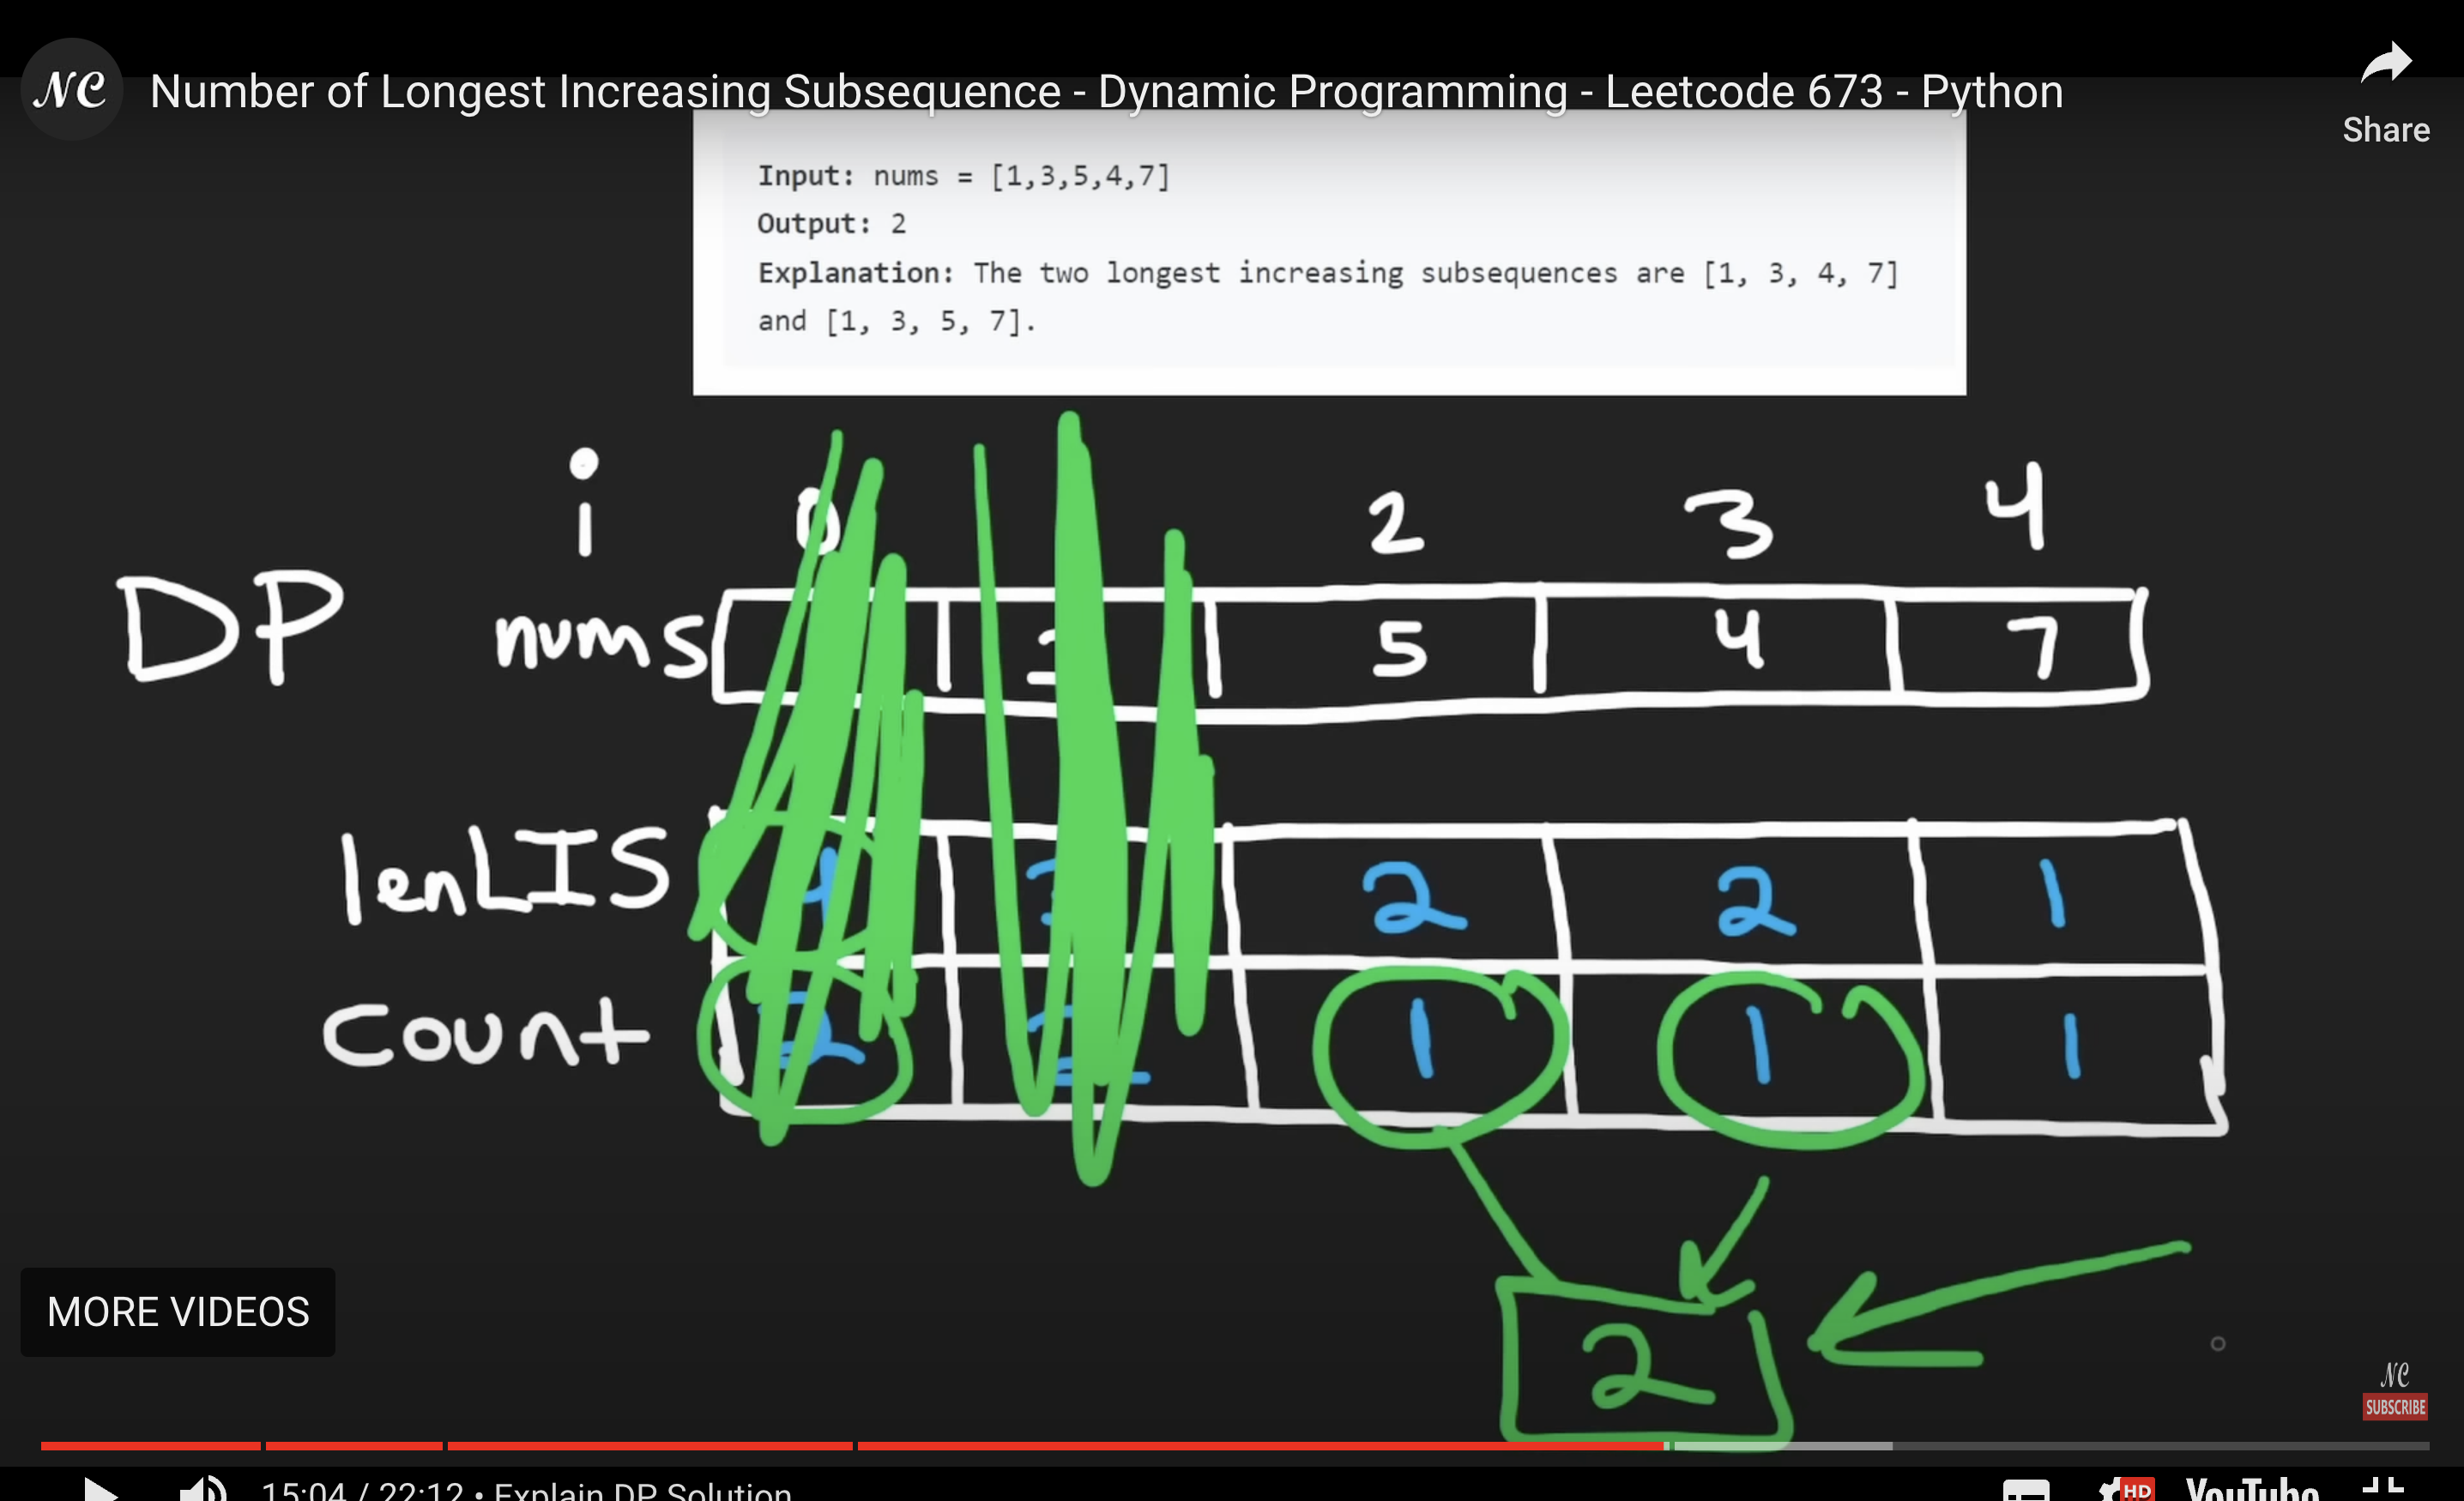 NC Number of Longest Increasing Subsequence - Dynamic Programming - Leetcode 673 - Python
Share
Input: nums = [1,3,5,4,7]
Output: 2
Explanation: The two longest increasing subsequences are [1, 3, 4, 7]
and [1, 3, 5, 7].
i 0 2 3 4
DP nums 5 4 7
lenLIS 4 2 2 1
Count 2 1 1 1
2
MORE VIDEOS
NC
SUBSCRIBE
15:04 / 22:12 • Explain DP Solution
HD YouTube